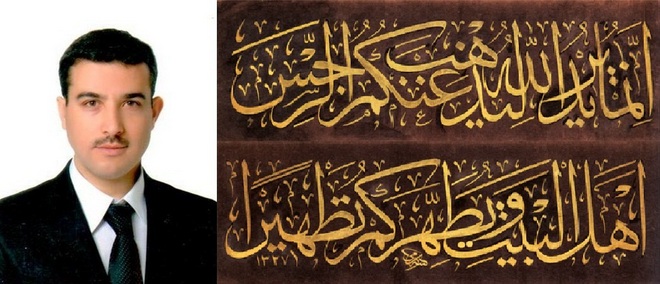 إنما يريد الله ليذهب عنكم الرجس
أهل البيت ويطهركم تطهيرا